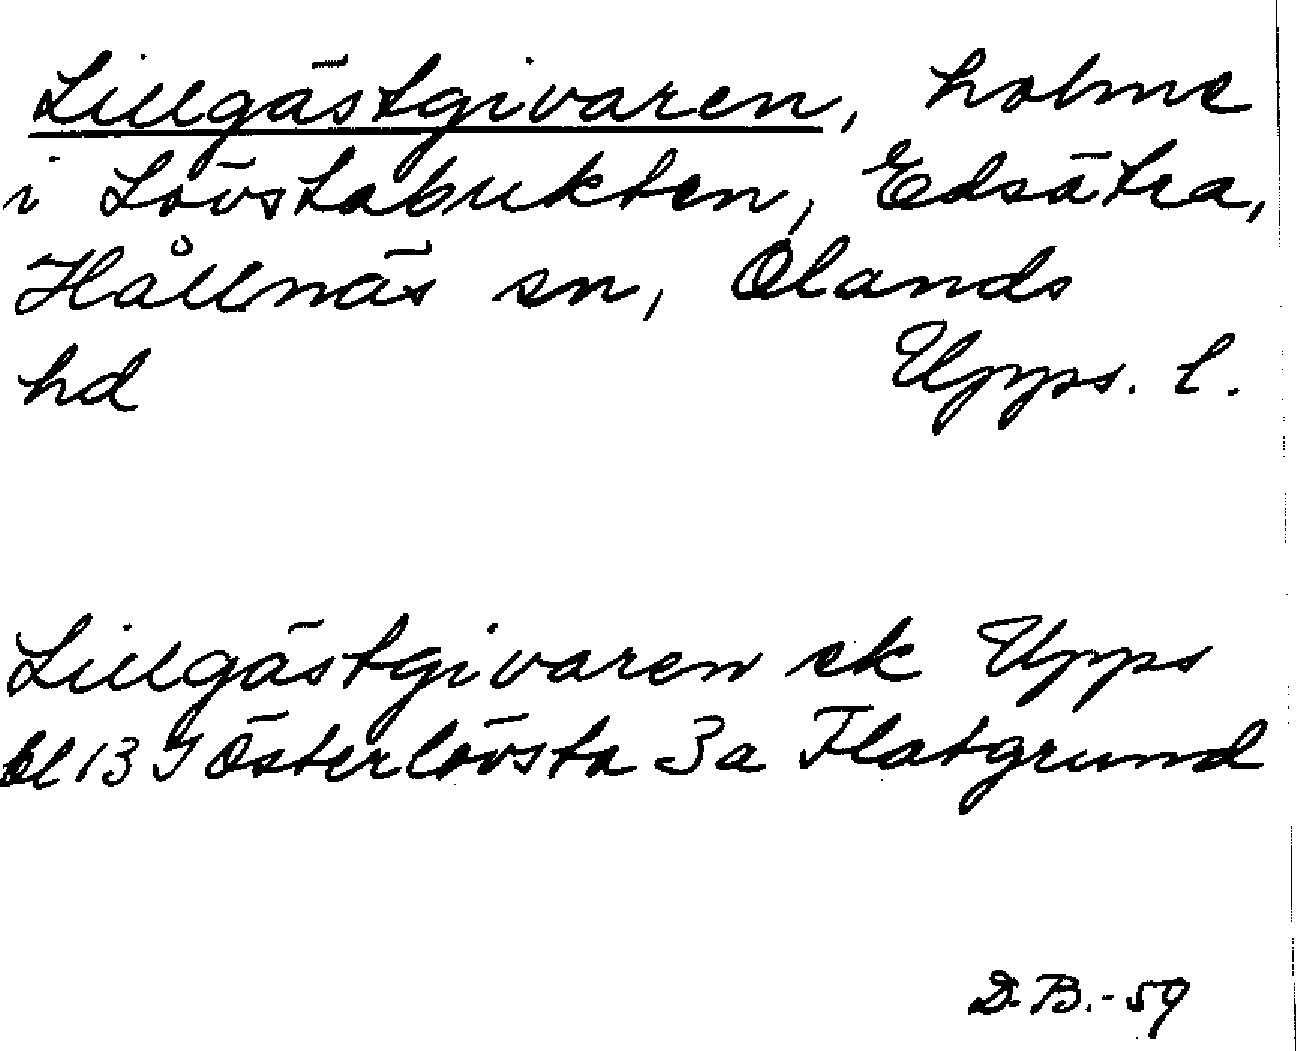 Lillgästgivaren, holme
i Lövstabukten, Edsätra,
Hållnäs sn, Olands
hd Upps. l.
Lillgästgivaren ek Upps
bl 13 I Österlövsta 3a Flatgrund
D.B.-59